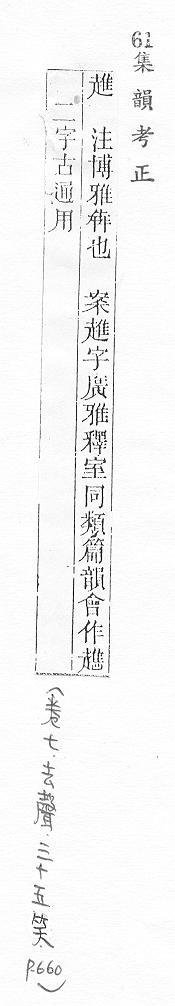 61 集韻考正
趭 注博雅犇也 案趭字廣雅釋室同類篇韻會作趭
二字古通用
(卷七.去聲.三十五笑.p.660)